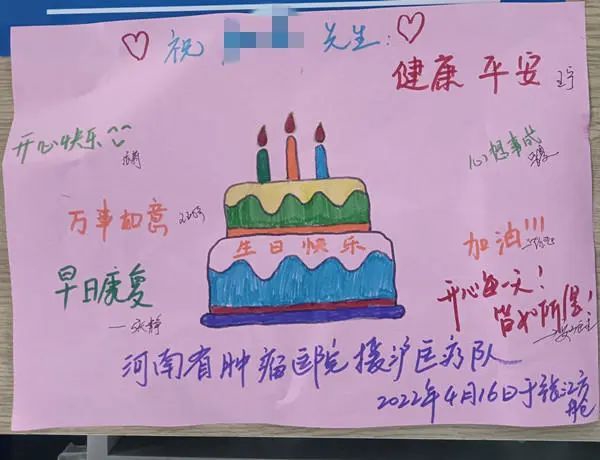 祝 先生:
健康 平安 王宁
开心快乐
心想事成
万事如意
加油!!!
生日快乐
早日康复
一张静
开心每一天!
皆如所愿!
河南省肿瘤医院援沪医疗队
2022年4月16日于张江方舱